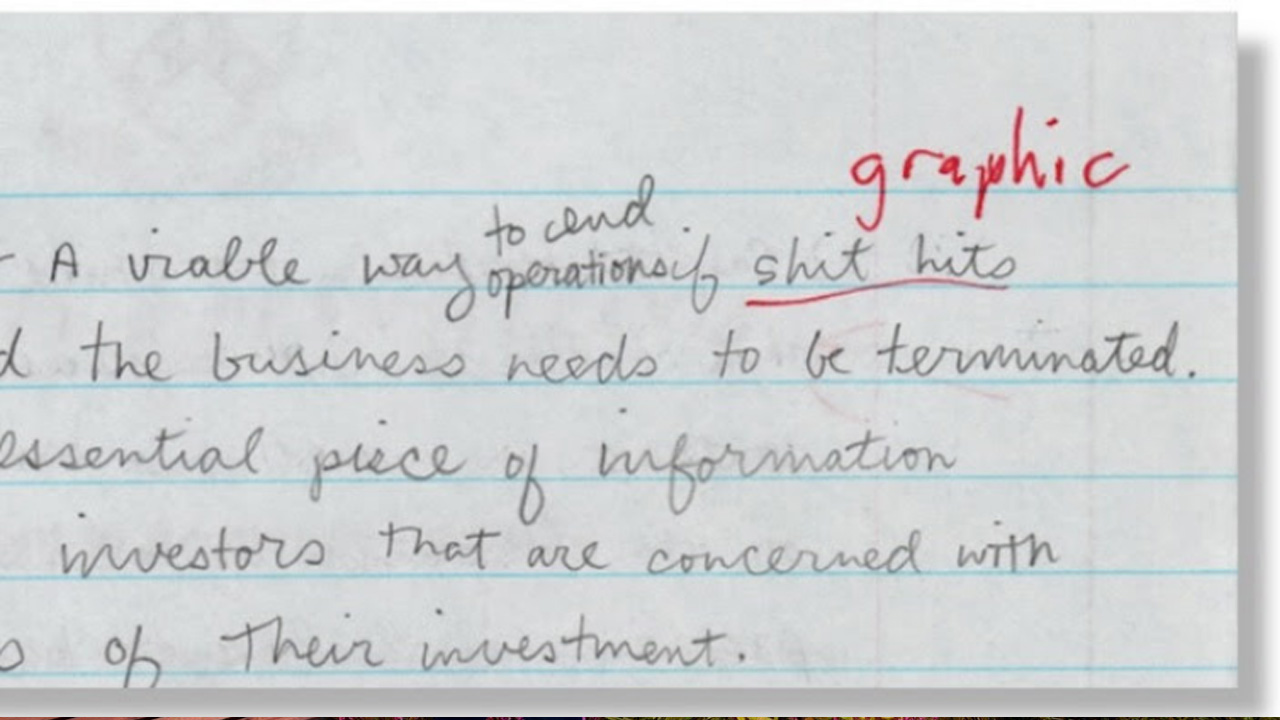 graphic
to end
- A viable way operations if shit hits
d the business needs to be terminated.
essential piece of information
investors that are concerned with
of Their investment.